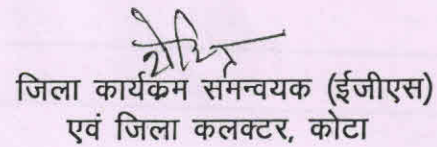 जिला कार्यक्रम समन्वयक (ईजीएस)
एवं जिला कलक्टर, कोटा